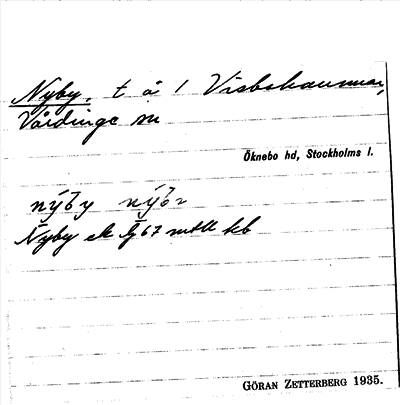 Nyby, t å 1 Visbohammar,
Vårdinge sn
Öknebo hd, Stockholms l.
nýby
Nyby ek
GÖRAN ZETTERBERG 1935.